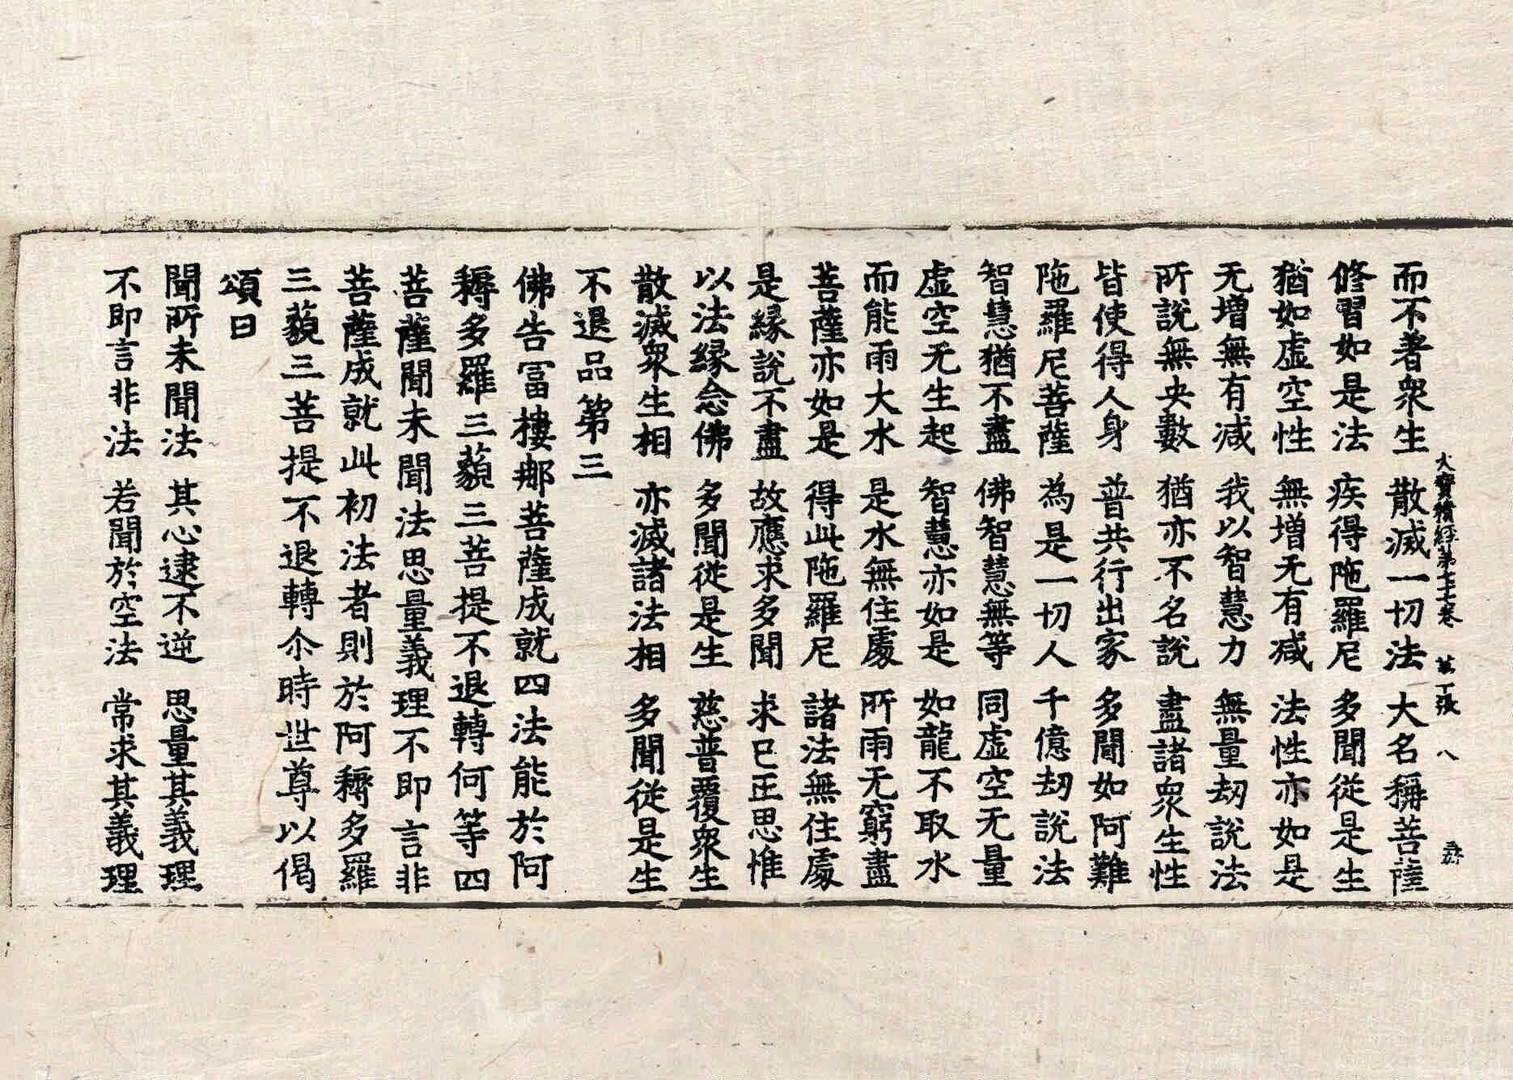 大寶積經第七十七卷　　張　八
而不著衆生　散滅一切法　大名稱菩薩
修習如是法　疾得陁羅尼　多聞從是生
猶如虛空性　無增无有减　法性亦如是
无增無有减　我以智慧力　無量劫說法
所說無央數　猶亦不名說　盡諸衆生性
皆使得人身　普共行出家　多聞如阿難
陁羅尼菩薩　為是一切人　千億劫說法
智慧猶不盡　佛智慧無等　同虛空无量
虛空无生起　智慧亦如是　如龍不取水
而能雨大水　是水無住處　所雨无窮盡
菩薩亦如是　得此陁羅尼　諸法無住處
是緣說不盡　故應求多聞　求已正思惟
以法緣念佛　多聞從是生　慈普覆衆生
散滅衆生相　亦滅諸法相　多聞從是生
不退品第三
佛告冨樓那菩薩成就四法能於阿
耨多羅三藐三菩提不退轉何等四
菩薩聞未聞法思量義理不即言非
菩薩成就此初法者則於阿耨多羅
三藐三菩提不退轉尒時世尊以偈
頌曰
聞所未聞法　其心逮不逆　思量其義理
不即言非法　若聞於空法　常求其義理